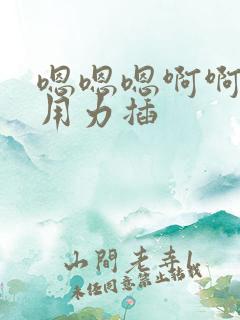 嗯嗯嗯啊啊
用力插
山間老幸L
未经同意禁止转载